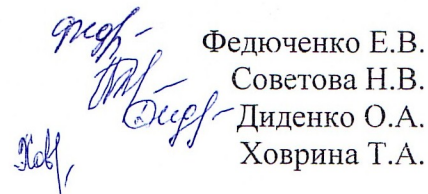 Федюченко Е.В.
Советова Н.В.
Диденко О.А.
Ховрина Т.А.